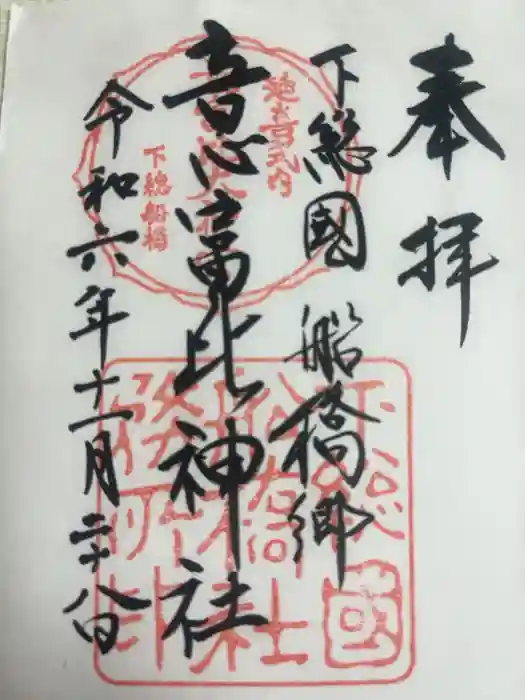 奉拝
下総國 船橋郷
意富比神社
令和六年十一月二十八日
延喜式内
下総船橋